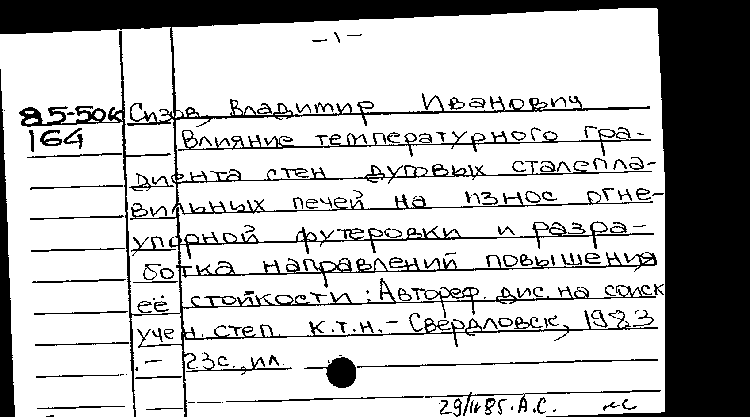 -1-
85-50к Сизов, Владимир Иванович
164 Влияние температурного гра-
диента стен дуговых сталепла-
вильных печей на износ огне-
упорной футеровки и разра-
ботка направлений повышения
её стойкости: Автореф. дис. на соиск
учен. степ. к.т.н. - Свердловск, 1983
.- 23с., ил.
29/IV 85. А.С.